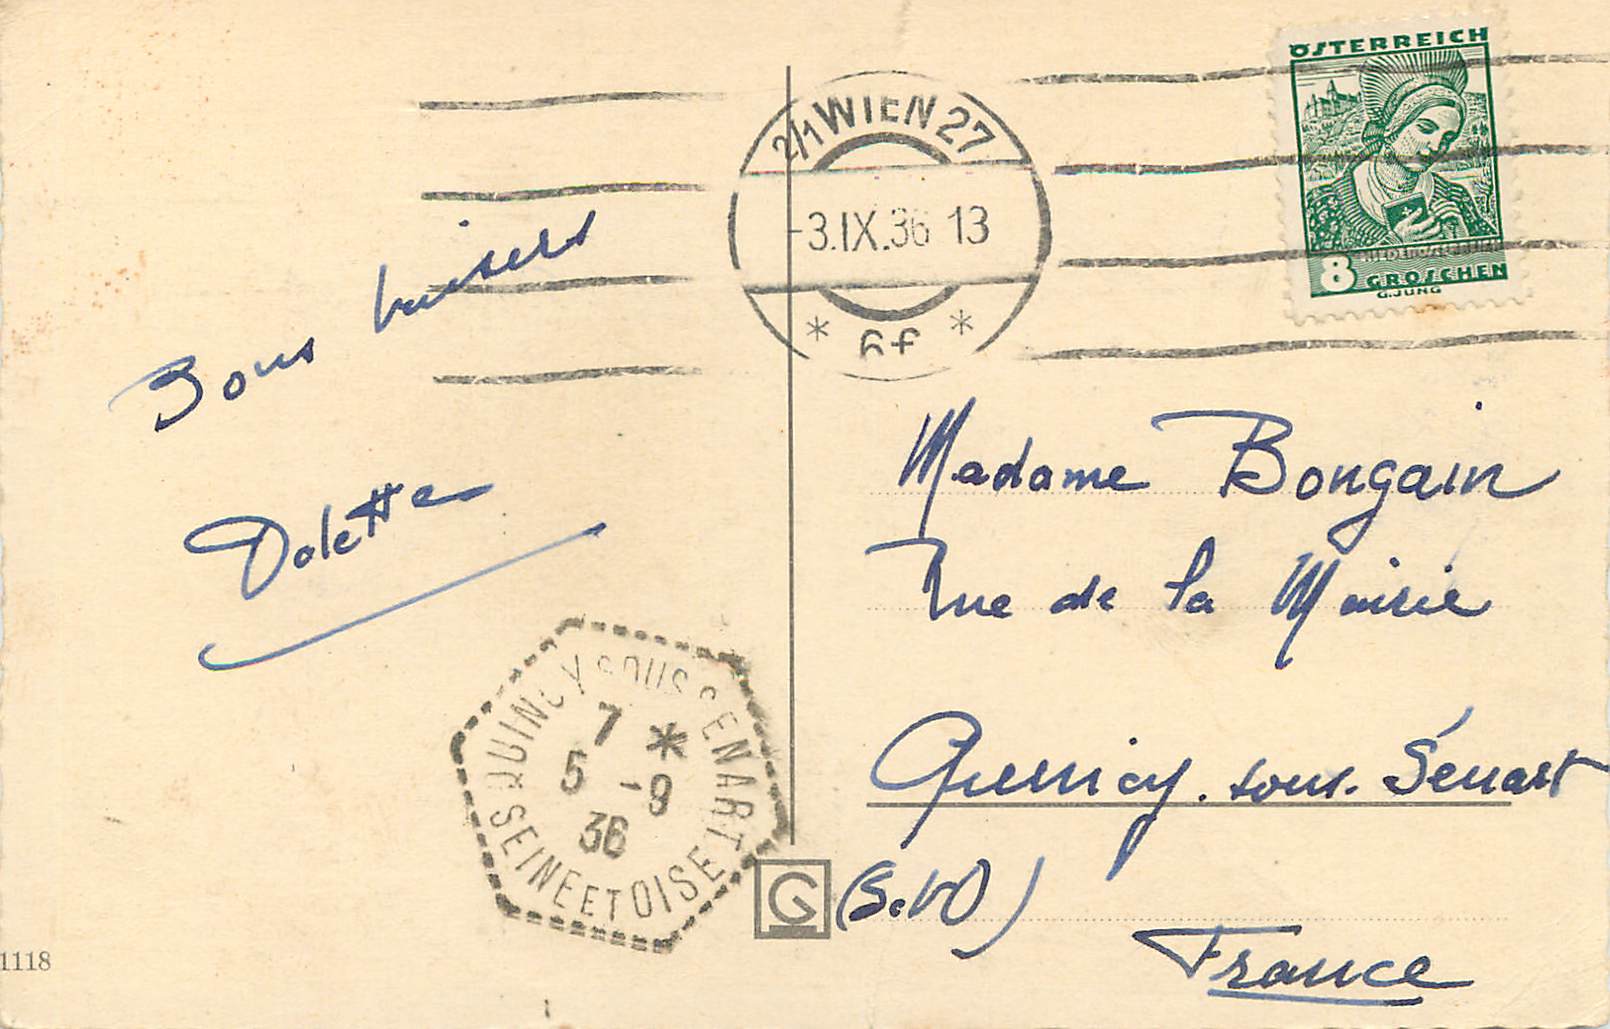 ÖSTERREICH
8 GROSCHEN
G.JUNG
2/1 WIEN 27
-3.IX.36 13
* 6f *
Bons baisers
Odette
QUINCY SOUS SENART
7 *
5 -9
36
SEINE ET OISE
Madame Bongain
Rue de la Mairie
Quincy-sous-Sénart
(S.&O)
France
G
1118